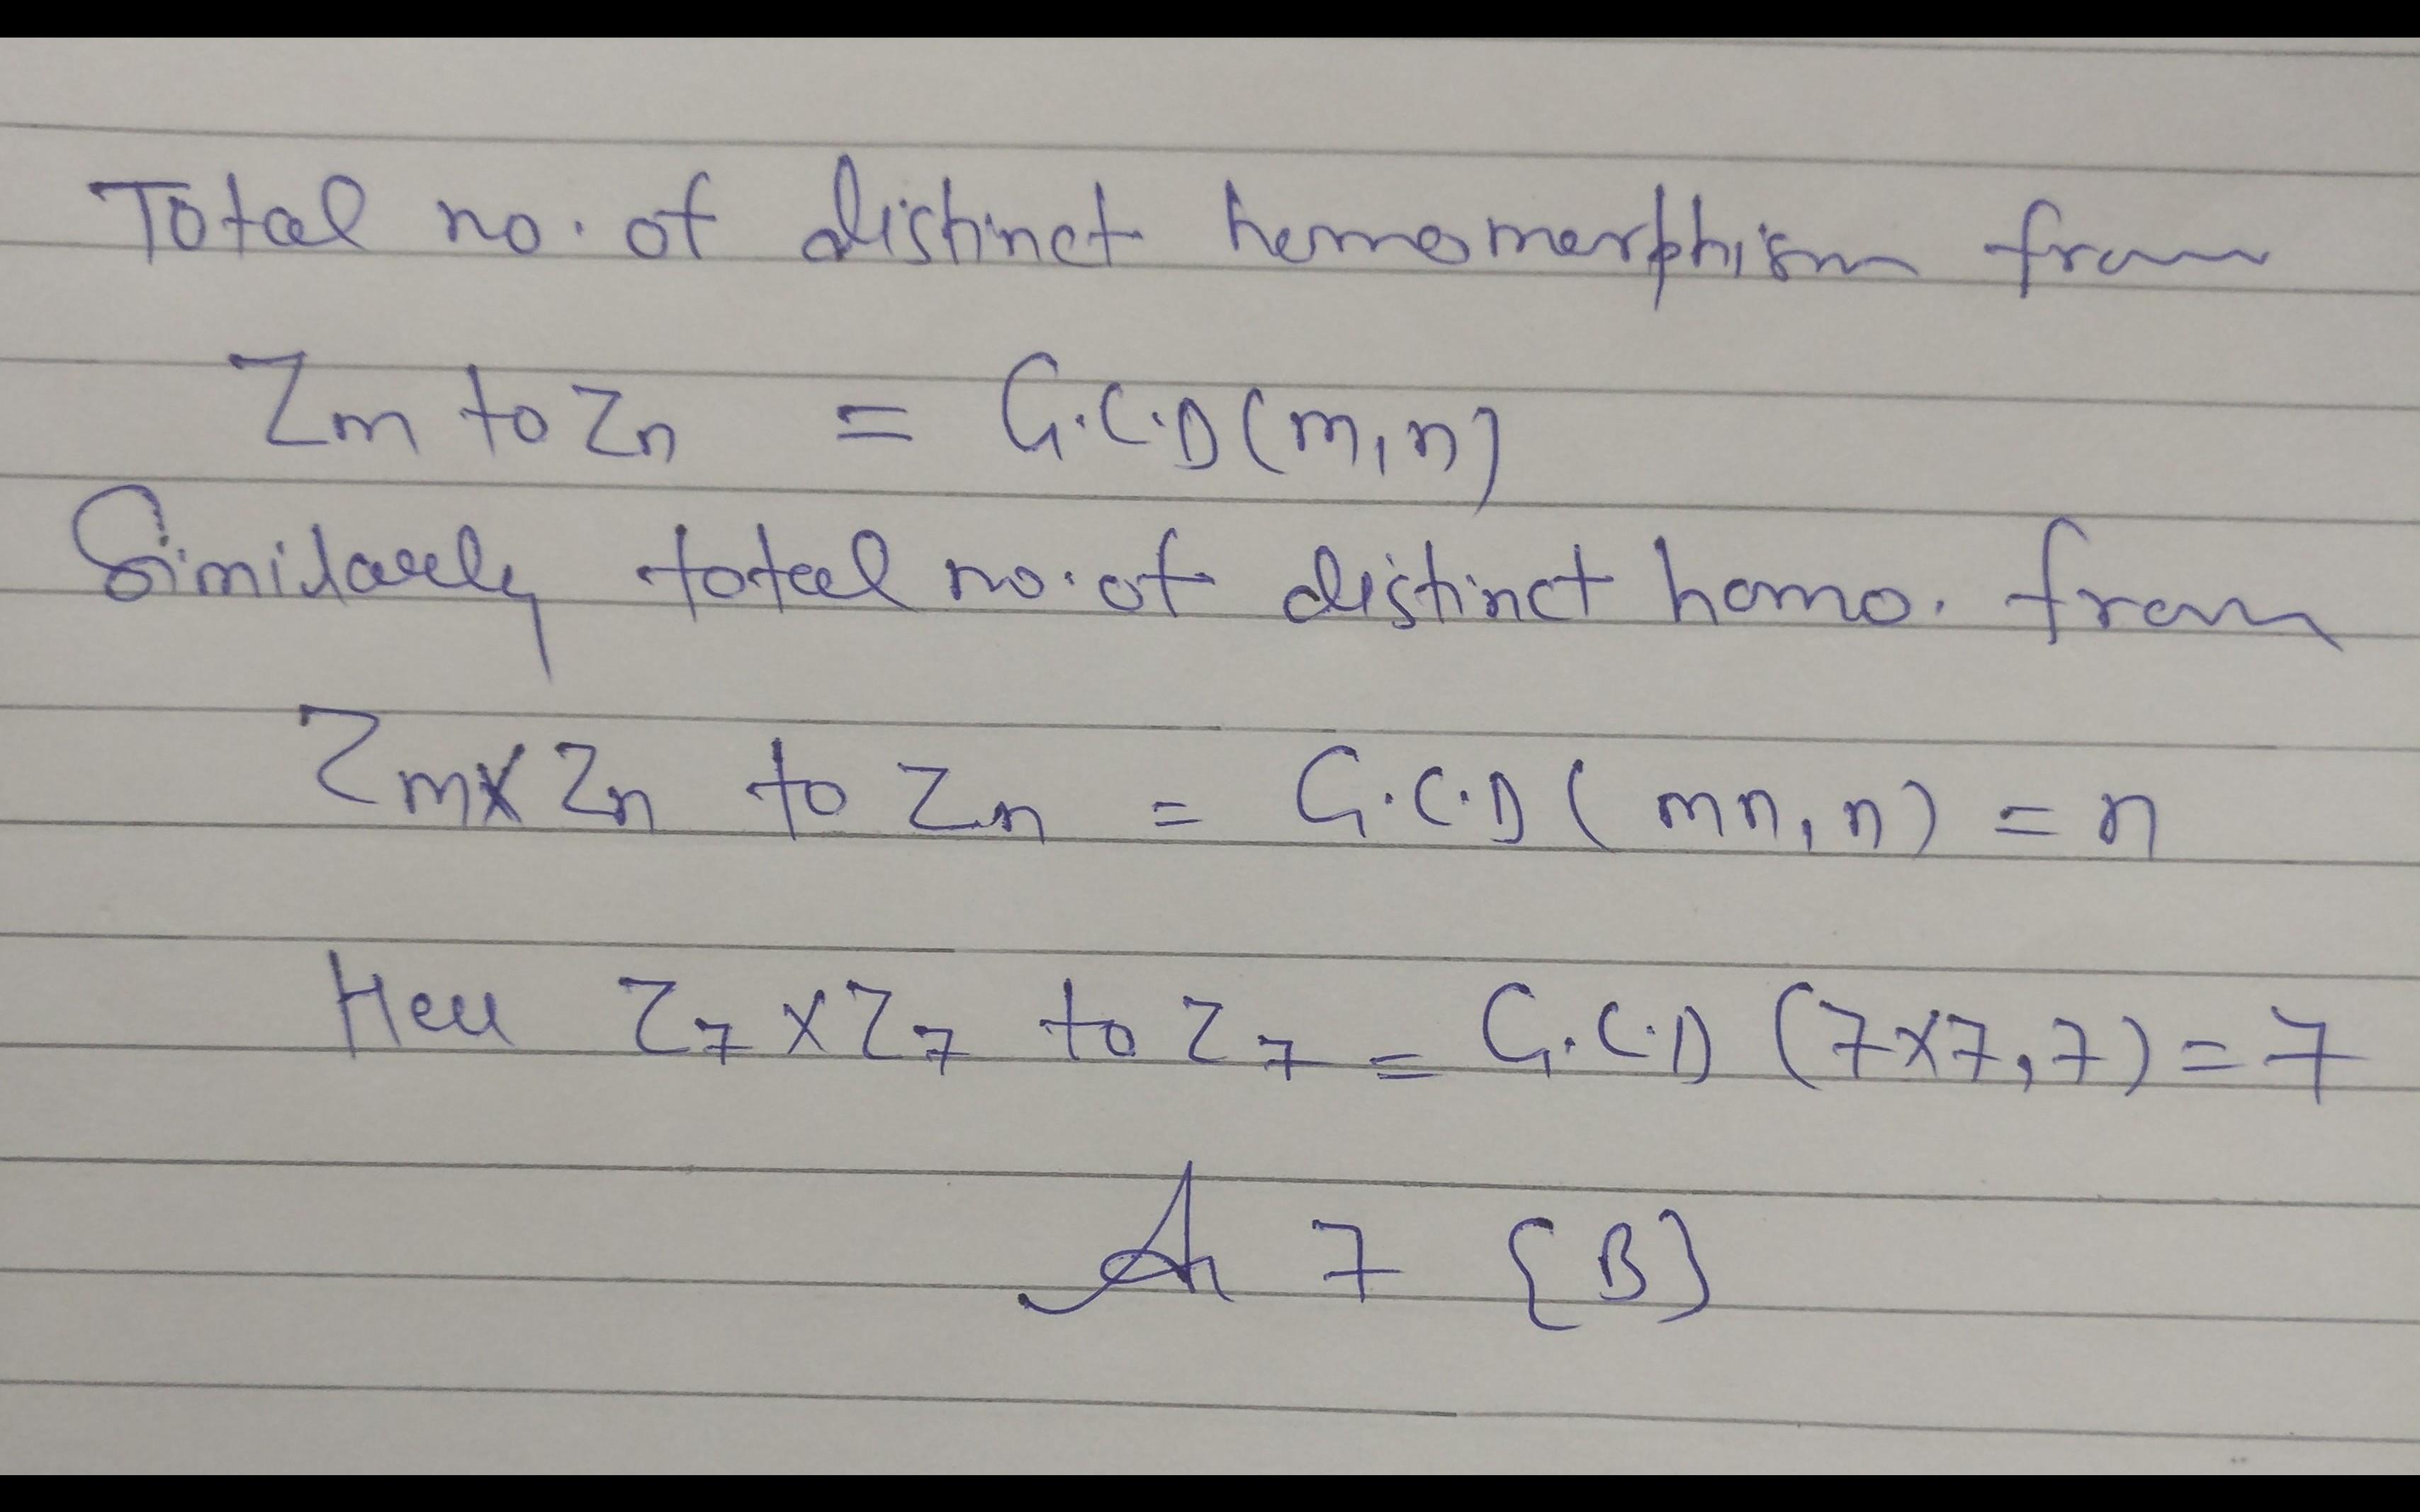 Total no. of distinct homomorphism from
Zm to Zn = G.C.D(m,n)
Similarly total no. of distinct homo. from
Zm×Zn to Zn = G.C.D(mn,n) = n
Here Z7×Z7 to Z7 = G.C.D (7×7,7) = 7
An 7 {B}